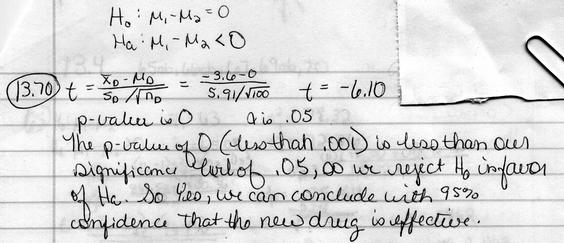 H₀: μ₁-μ₂=0
Ha: μ₁-μ₂<0
13.70 t = x̄D-MD / SD/√nD = -3.6-0 / 5.91/√100 t = -6.10
p-value is 0 α is .05
The p-value of 0 (less than .001) is less than our
significance level of .05, so we reject H₀ in favor
of Ha. So Yes, we can conclude with 95%
confidence that the new drug is effective.